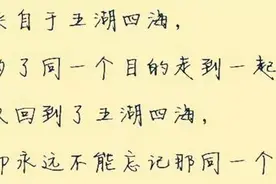 来自于五湖四海,
为了同一个目的走到一起
回到了五湖四海,
却永远不能忘记那同一个